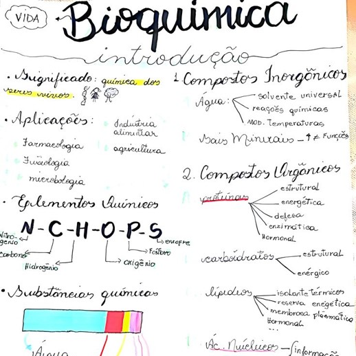 VIDA
Bioquímica
introdução
• Significado: química dos
seres vivos.
• Aplicações:
Farmacologia
Fisiologia
microbiologia
Indústria
alimentar
agricultura
• Elementos Químicos
N-C-H-O-P-S
Nitrogênio
Carbono
Hidrogênio
oxigênio
Fósforo
enxofre
• Substâncias químicas
Água
1. Compostos Inorgânicos
Água:
solvente universal
reações químicas
MOD. Temperaturas
Sais Minerais → ↑ ≠ Funções
2. Compostos Orgânicos
proteínas
estrutural
energética
defesa
enzimática
Hormonal
carboidratos
estrutural
energético
lipídeos
isolante térmicos
reserva energética
membrana plasmática
Hormonal
Ác. Nucleicos